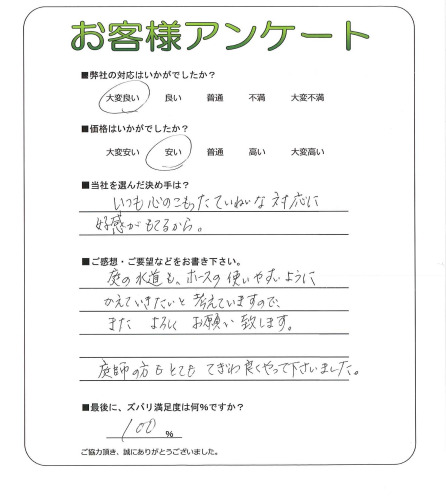 お客様アンケート
■弊社の対応はいかがでしたか?
大変良い 良い 普通 不満 大変不満
■価格はいかがでしたか?
大変安い 安い 普通 高い 大変高い
■当社を選んだ決め手は?
いつも心のこもったていねいな対応に
好感がもてるから。
■ご感想・ご要望などをお書き下さい。
庭の水道も、ホースの使いやすいように
かえていきたいと考えていますので、
また よろしく お願い致します。
庭師の方もとても てぎわ良くやって下さいました。
■最後に、ズバリ満足度は何%ですか?
100 %
ご協力頂き、誠にありがとうございました。